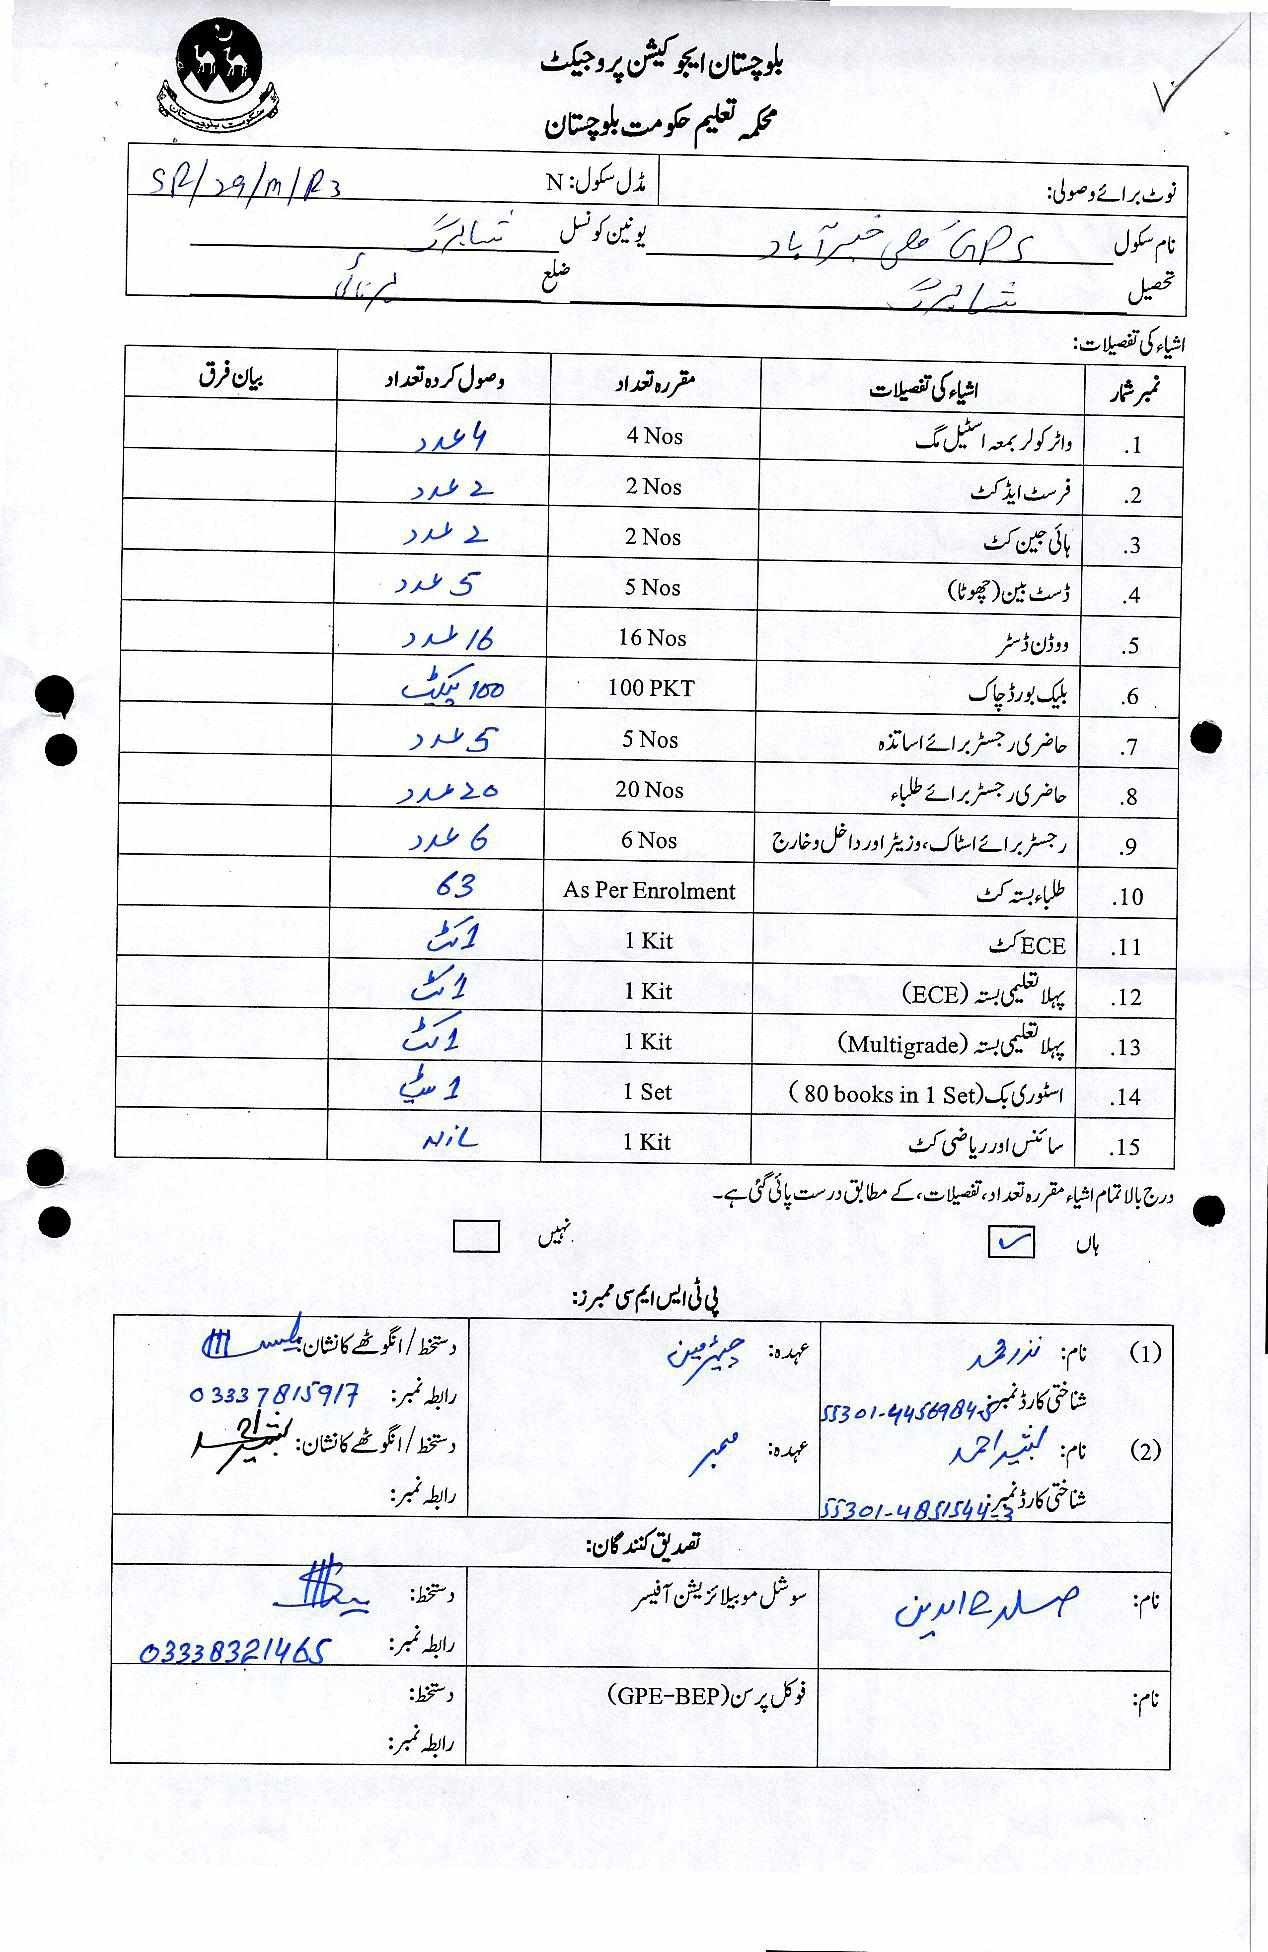 حکومت بلوچستان
بلوچستان ایجوکیشن پروجیکٹ
محکمہ تعلیم حکومت بلوچستان
نوٹ برائے وصولی: مڈل سکول: N SR/29/M/R3
نام سکول GPS کلی خیبر آباد یونین کونسل شاہرگ
تحصیل شاہرگ ضلع ہرنائی
اشیاء کی تفصیلات:
نمبر شمار اشیاء کی تفصیلات مقررہ تعداد وصول کردہ تعداد بیان فرق
1. واٹر کولر بمعہ اسٹیل مگ 4 Nos 4 عدد
2. فرسٹ ایڈ کٹ 2 Nos 2 عدد
3. ہائی جین کٹ 2 Nos 2 عدد
4. ڈسٹ بین (چھوٹا) 5 Nos 5 عدد
5. ووڈن ڈسٹر 16 Nos 16 عدد
6. بلیک بورڈ چاک 100 PKT 100 پیکٹ
7. حاضری رجسٹر برائے اساتذہ 5 Nos 5 عدد
8. حاضری رجسٹر برائے طلباء 20 Nos 20 عدد
9. رجسٹر برائے اسٹاک، وزیٹر اور داخل و خارج 6 Nos 6 عدد
10. طلباء بستہ کٹ As Per Enrolment 63
11. ECE کٹ 1 Kit 1 کٹ
12. پہلا تعلیمی بستہ (ECE) 1 Kit 1 کٹ
13. پہلا تعلیمی بستہ (Multigrade) 1 Kit 1 کٹ
14. اسٹوری بک (80 books in 1 Set) 1 Set 1 سیٹ
15. سائنس اور ریاضی کٹ 1 Kit Nil
درج بالا تمام اشیاء مقررہ تعداد، تفصیلات، کے مطابق درست پائی گئی ہے۔
ہاں ✓ نہیں
پی ٹی ایس ایم سی ممبرز:
(1) نام: نذر محمد عہدہ: چیئرمین دستخط / انگوٹھے کا نشان:
شناختی کارڈ نمبر: رابطہ نمبر: 03337815917
(2) نام: بشیر احمد عہدہ: ممبر دستخط / انگوٹھے کا نشان: بشیر احمد
شناختی کارڈ نمبر: 55301-4851544-3 رابطہ نمبر:
تصدیق کنندگان:
نام: سوشل موبیلائزیشن آفیسر دستخط:
رابطہ نمبر: 03338321465
نام: فوکل پرسن (GPE-BEP) دستخط:
رابطہ نمبر: